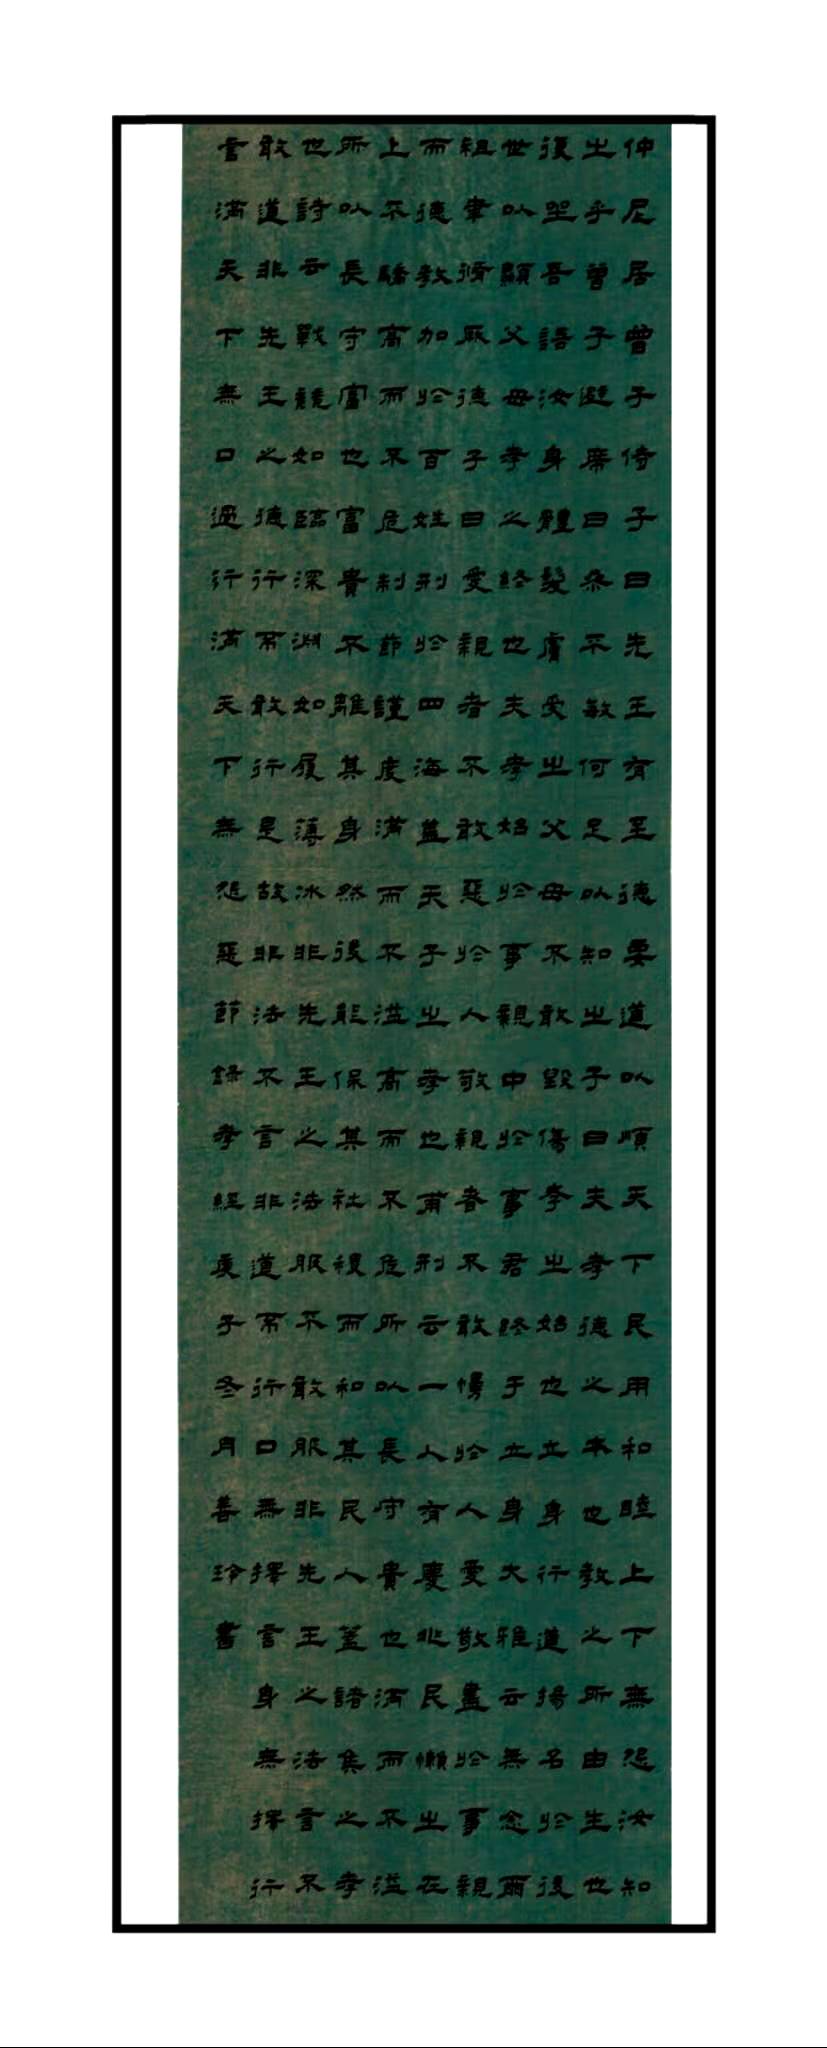 仲尼居曾子侍子曰先王有至德要道以順天下民用和睦上下無怨汝知
之乎曾子避席曰參不敏何足以知之子曰夫孝德之本也教之所由生也
復坐吾語汝身體髮膚受之父母不敢毀傷孝之始也立身行道揚名於後
世以顯父母孝之終也夫孝始於事親中於事君終于立身大雅云無念爾
祖聿脩厥德子曰愛親者不敢惡於人敬親者不敢慢於人愛敬盡於事親
而德教加於百姓刑於四海蓋天子之孝也甫刑云一人有慶兆民賴之在
上不驕高而不危制節謹度滿而不溢高而不危所以長守貴也滿而不溢
所以長守富也富貴不離其身然後能保其社稷而和其民人蓋諸侯之孝
也詩云戰兢如臨深淵如履薄冰非先王之法服不敢服非先王之法言不
敢道非先王之德行不敢行是故非法不言非道不行口無擇言身無擇行
言滿天下無口過行滿天下無怨惡節錄孝經庚子冬月善玲書